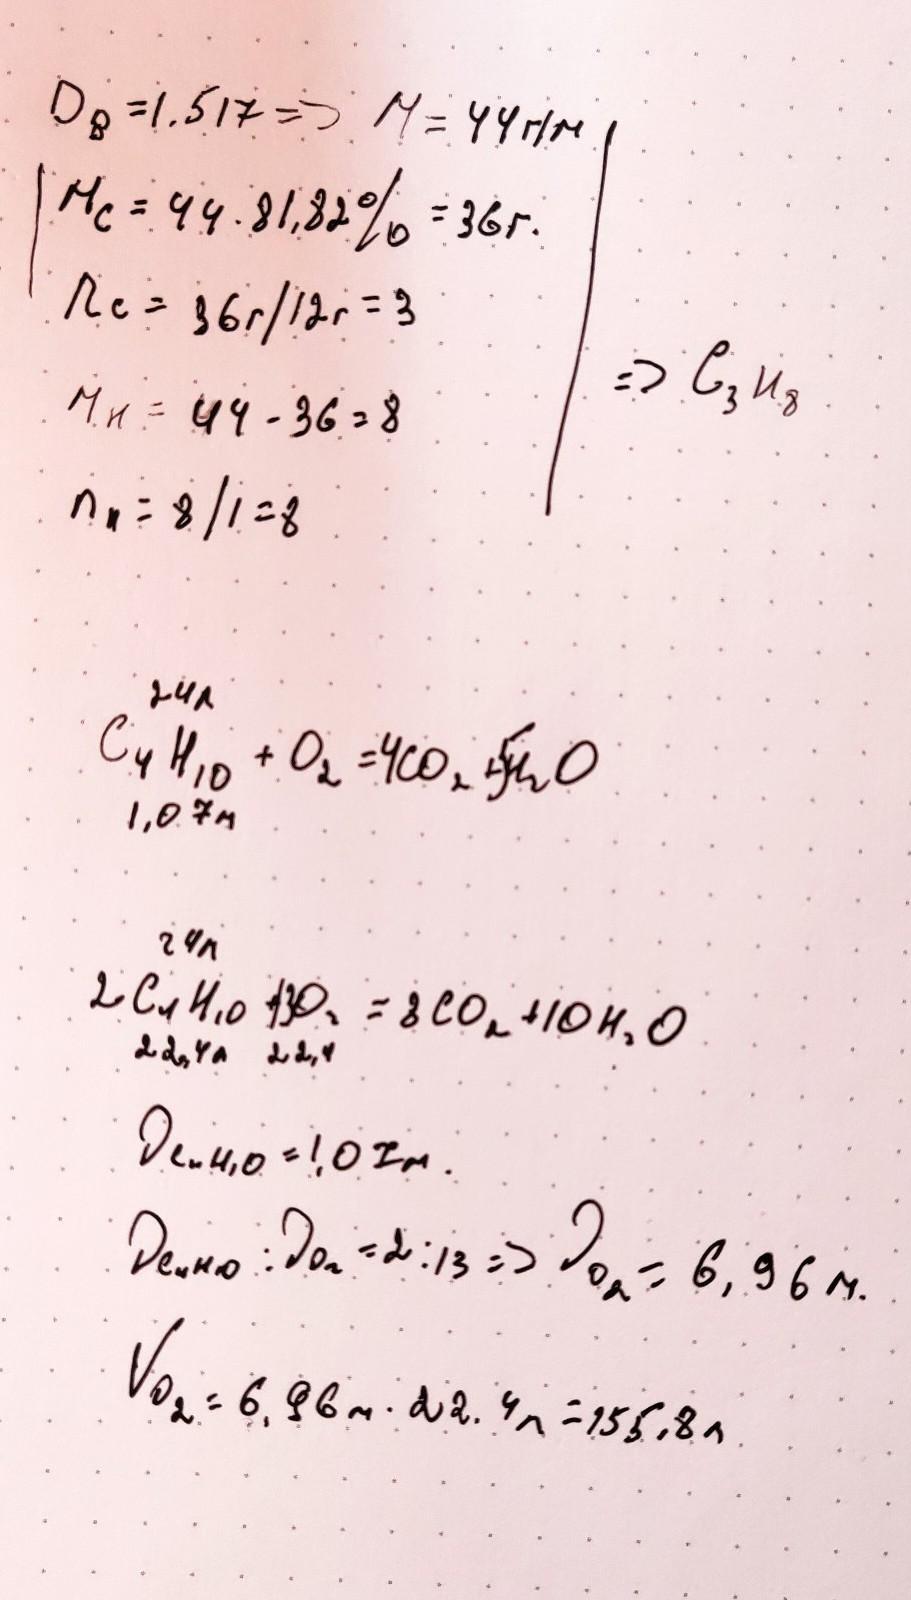 D_в = 1.517 => M = 44 г/м
M_C = 44 · 81,82% = 36 г.
n_C = 36г/12г = 3
M_H = 44 - 36 = 8
=> C₃H₈
n_H = 8/1 = 8
24л
C₄H₁₀ + O₂ = 4CO₂ + 5H₂O
1,07м
24л
2C₄H₁₀ + 13O₂ = 8CO₂ + 10H₂O
22,4л 22,4
∂C₄H₁₀ = 1,07м.
∂C₄H₁₀ : ∂O₂ = 2:13 => ∂O₂ = 6,96 м.
V_O₂ = 6,96м · 22.4л = 155,8л